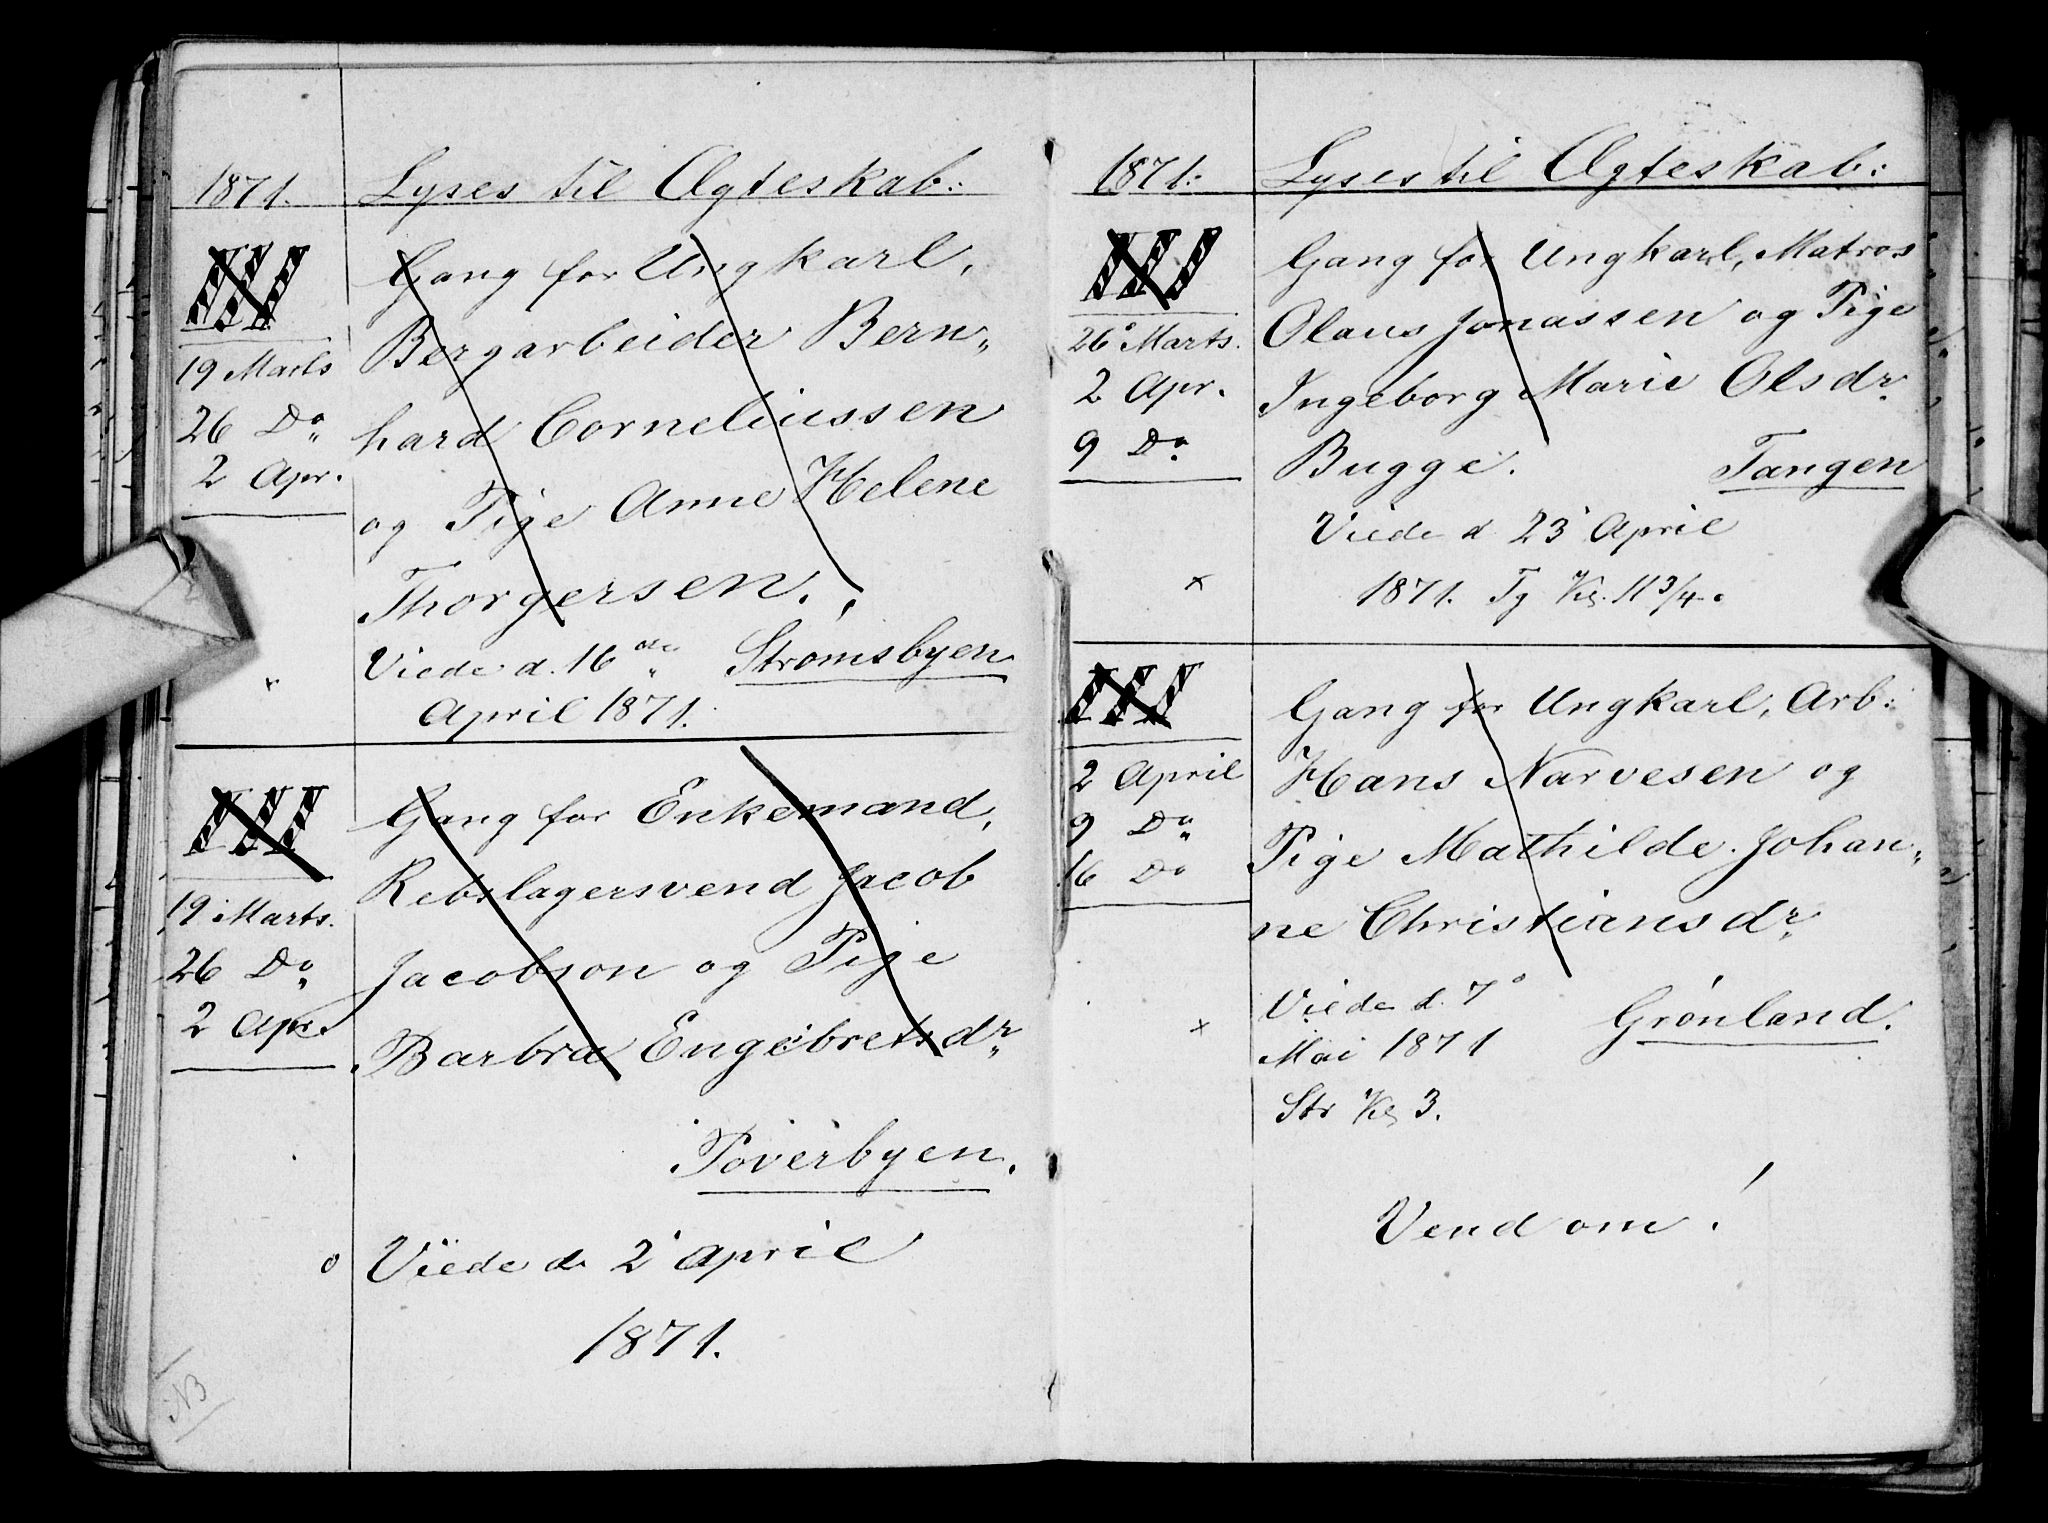 1871.
Lyses til Ægteskab:
III
19 Marts
26 Do
2 Apr.
Gang for Ungkarl,
Bergarbeider Bern„
hard Corneliussen
og Pige Anne Helene
Thorgersen.
Viede d. 16de Strømsbyen
April 1871.
III
19 Marts.
26 Do
2 Apr.
Gang for Enkemand,
Rebslagersvend Jacob
Jacobson og Pige
Barbra Engebretsdr
Toverbyen.
o Viede d. 2' April
1871.
NB
1871:
Lyses til Ægteskab:
III
26 Marts.
2 Apr.
9 Do
Gang for Ungkarl, Matros
Olaus Jonassen og Pige
Ingeborg Marie Olsdr
Bugge. Tangen
Viede d 23' April
x 1871. Tg Kl. 11 3/4.
III
2 April
9 Do
16 Do
Gang for Ungkarl, Arb:
Hans Narvesen og
Pige Mathilde Johan„
ne Christiansdr
Viede d. 7
Mai 1871 Grønland.
Str Kl 3.
Vend om!